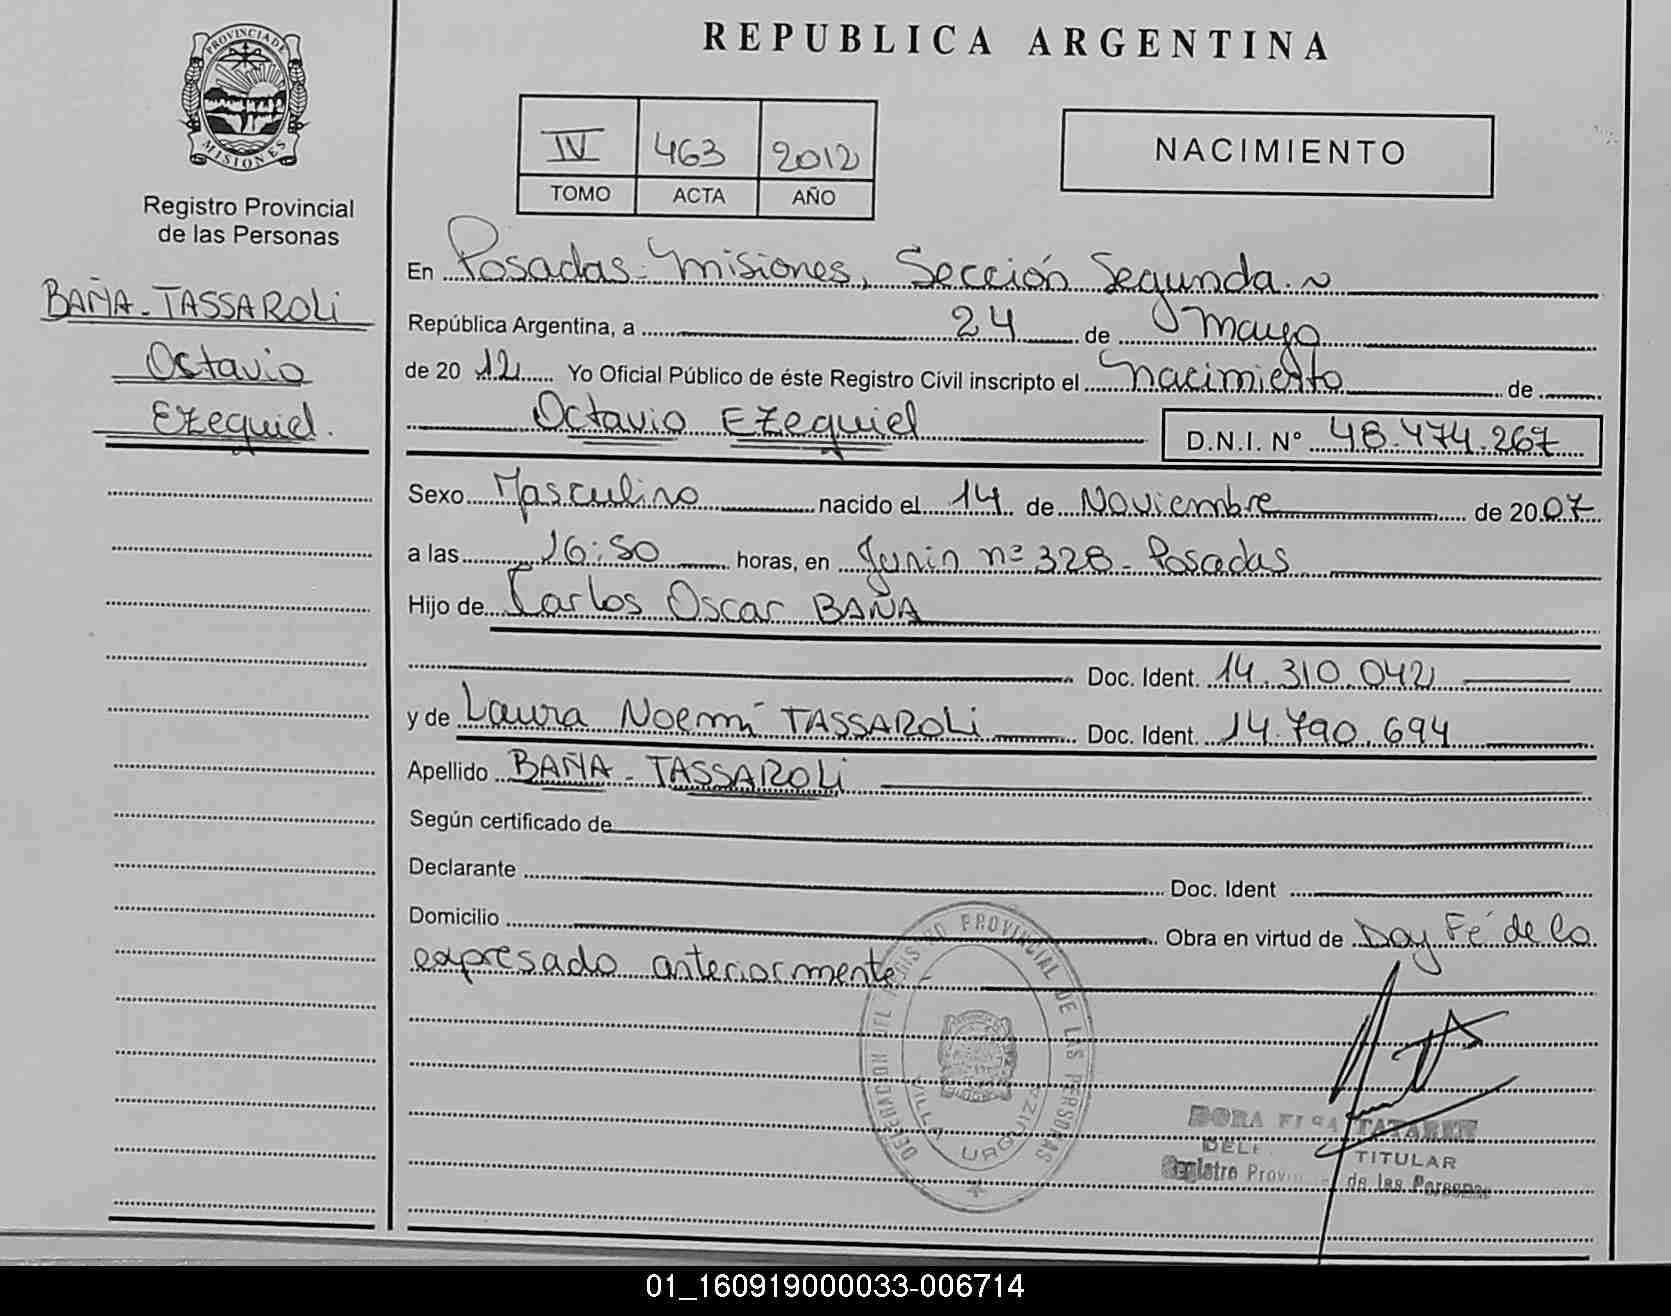 REPUBLICA ARGENTINA
PROVINCIA DE
MISIONES
Registro Provincial
de las Personas
IV 463 2012
TOMO ACTA AÑO
NACIMIENTO
BAÑA-TASSAROLI
Octavio
Ezequiel.
En Posadas-Misiones, Sección Segunda.~
República Argentina, a 24 de mayo
de 2012 Yo Oficial Público de éste Registro Civil inscripto el nacimiento de
Octavio Ezequiel D.N.I. N° 48.474.267
Sexo Masculino nacido el 14 de Noviembre de 2007
a las 16:50 horas, en Junin nº 328 - Posadas
Hijo de Carlos Oscar BAÑA
Doc. Ident. 14.310.042
y de Laura Noemí TASSAROLI Doc. Ident. 14.790.694
Apellido BAÑA-TASSAROLI
Según certificado de
Declarante Doc. Ident
Domicilio Obra en virtud de Doy Fé de lo
expresado anteriormente -
DELEGACION DEL REGISTRO PROVINCIAL DE LAS PERSONAS
VILLA URQUIZA
DORA TATAREN
TITULAR
Registro de las Personas
01_160919000033-006714